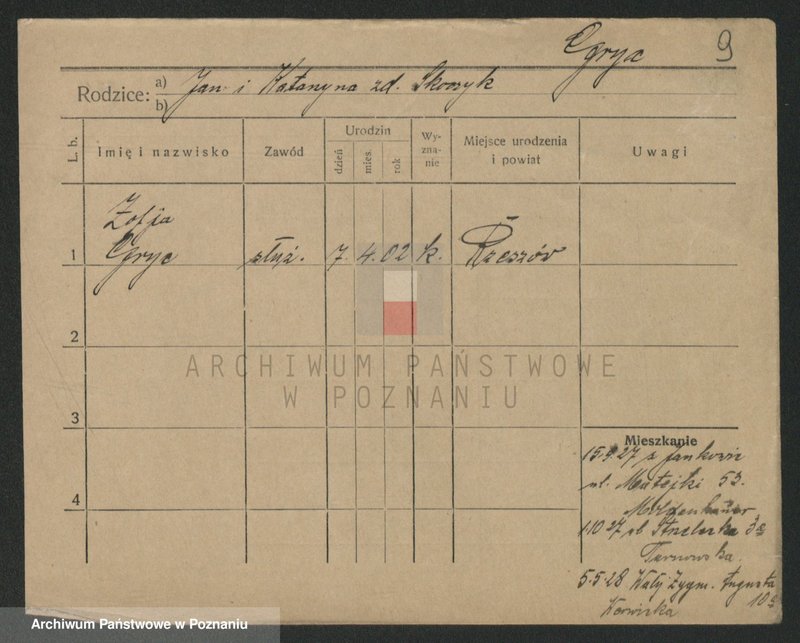 Gryc 9
Rodzice: a) Jan i Katarzyna zd. Skoczyk
b)
L. b. Imię i nazwisko Zawód Urodzin dzień mies. rok Wy-zna-nie Miejsce urodzenia i powiat Uwagi
Zofja
1 Gryc służ. 7. 4. 02 k. Rzeszów
2
ARCHIWUM PAŃSTWOWE
W POZNANIU
3
Mieszkanie
27 z Jankowic
4 ul. Matejki 53.
1.10 27 ul. Strzelecka 3a
Tarnowska.
5.5.28 Wały Zygm. Augusta
10a
Archiwum Państwowe w Poznaniu